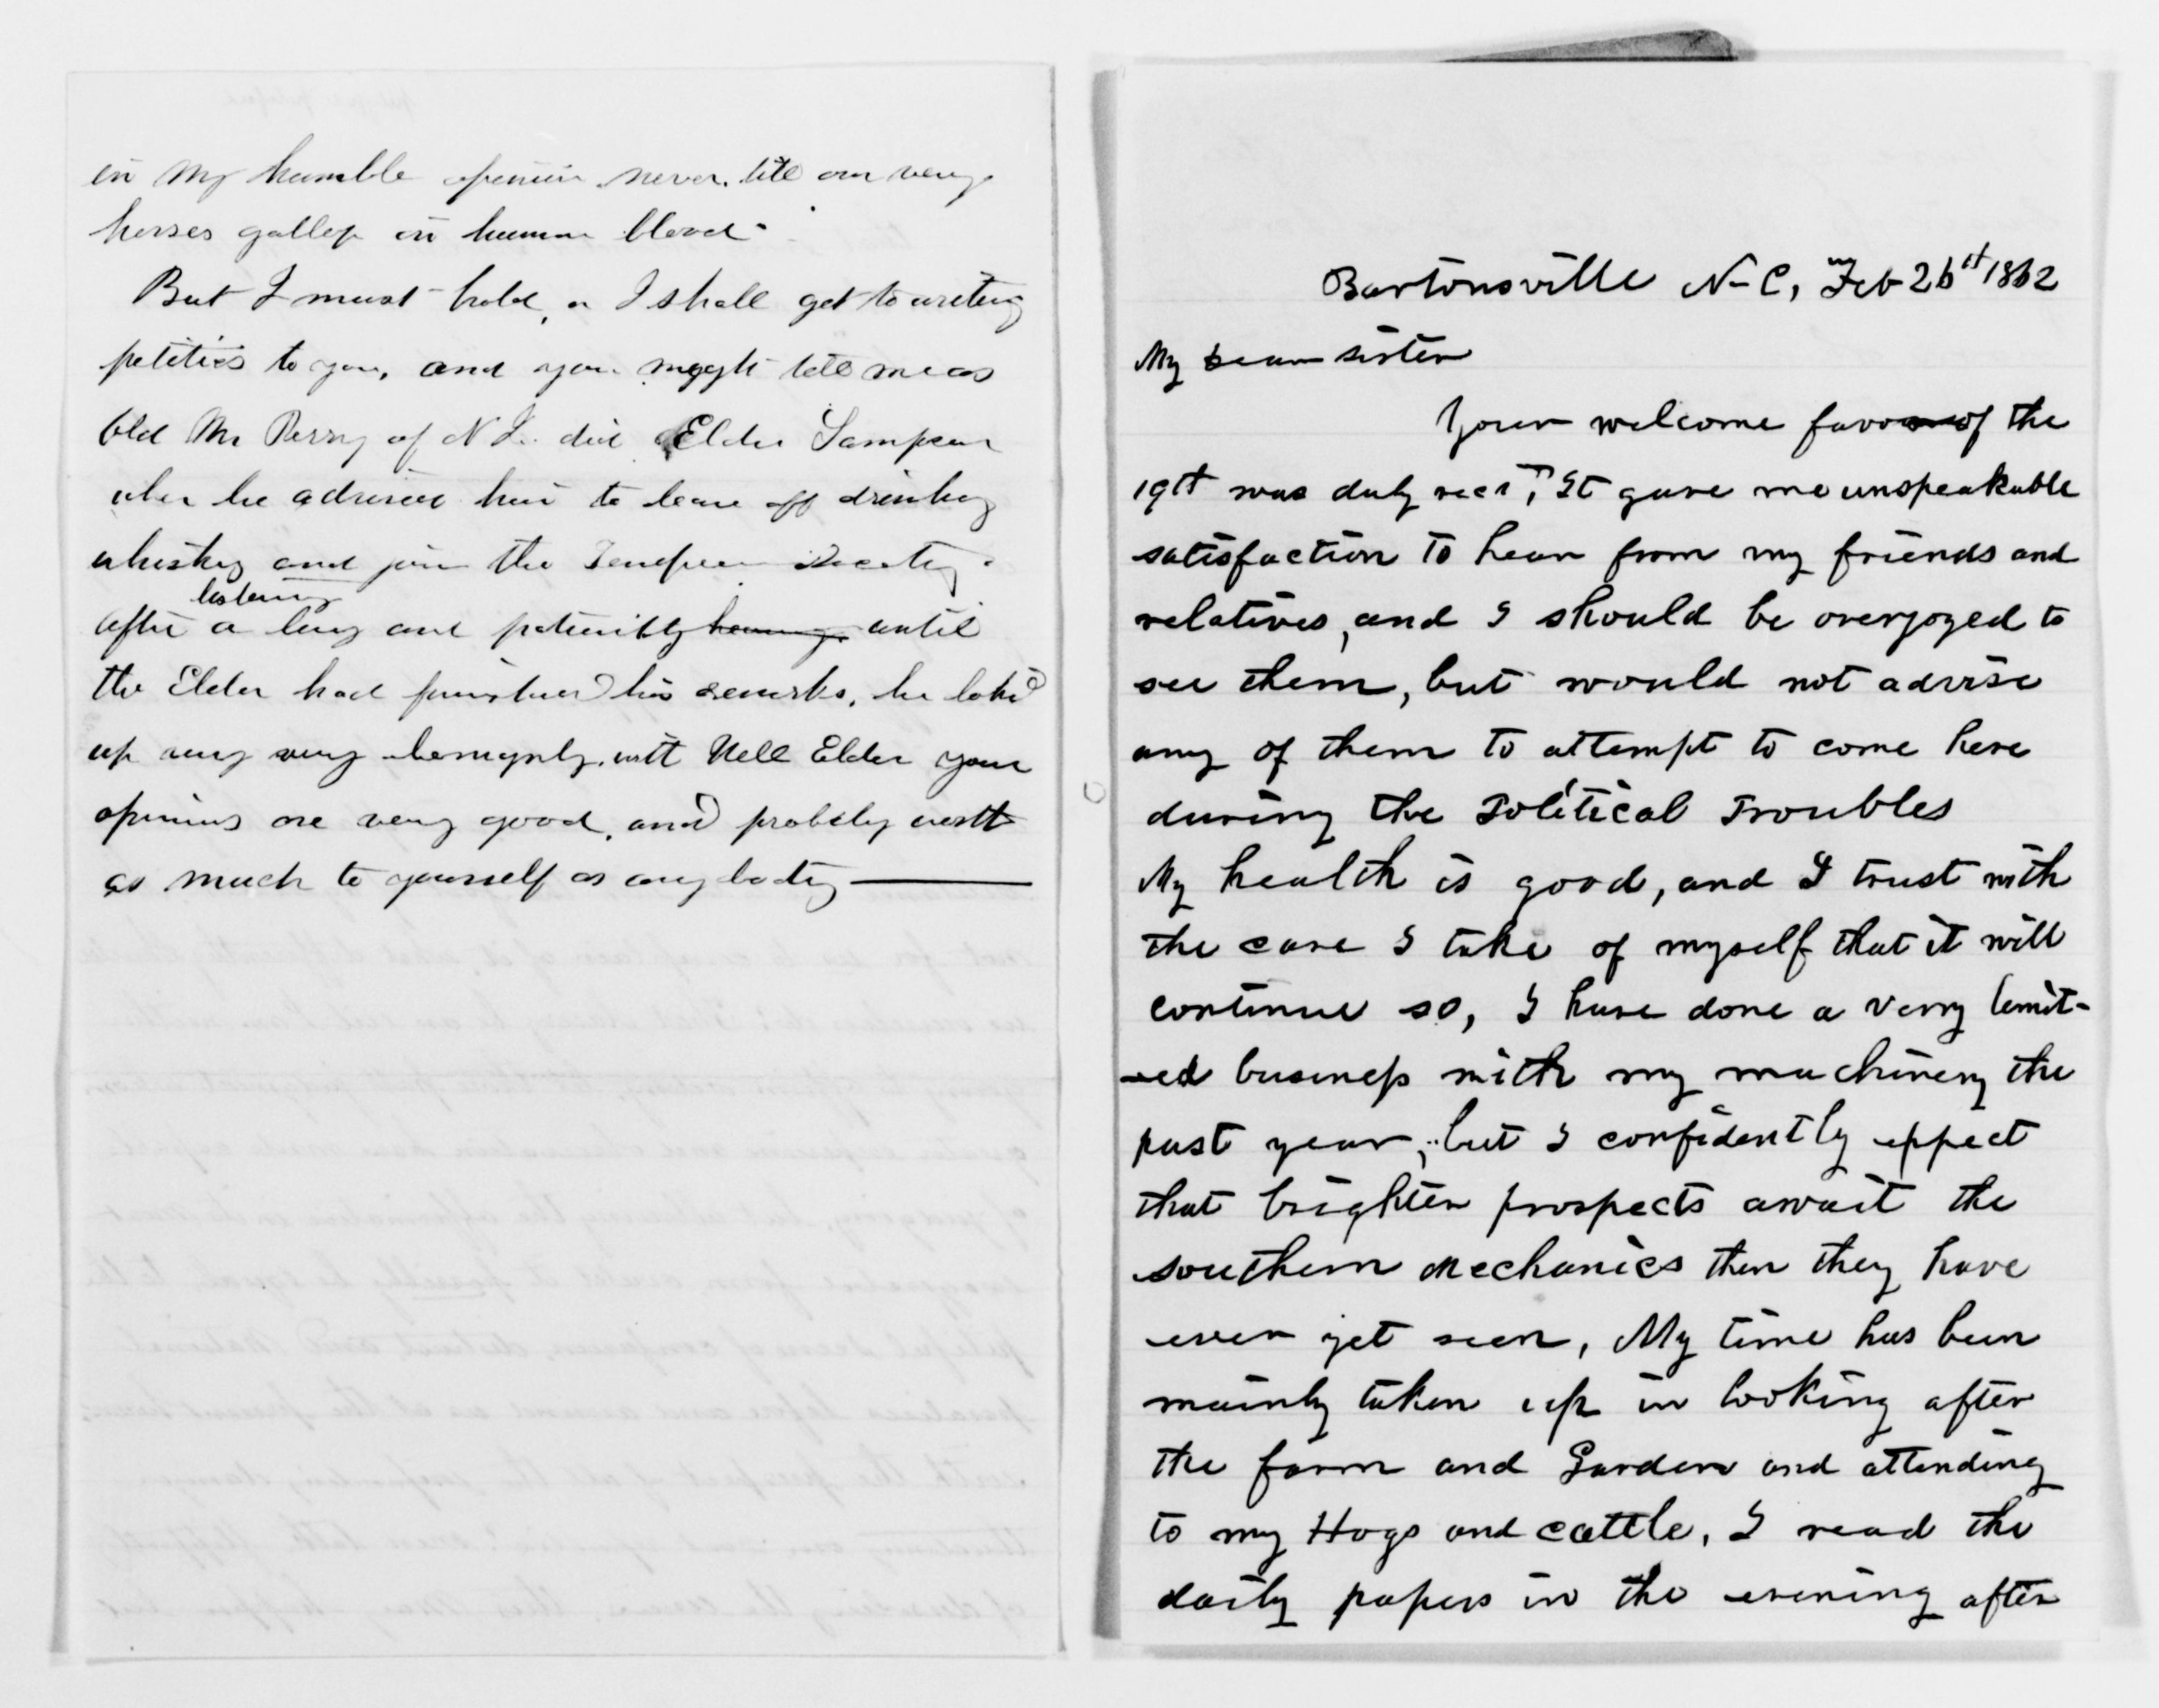 in my humble openion never, till our very
horses gallop in human blood.
But I must hold, or I shall get to writing
polities to you, and you myght tell me as
Old Mr Perry of N I. did Elder Sampson
when he advised him to leave off drinking
whiskey and join the Temperan Society.
listening
after a long and patiently hearing until
the Elder had finished his remarks, he lokd
up very very benignly. with Well Elder your
opinions are very good, and probely worth
as much to yourself as any body
Bartonsville N-C, Feb 26st 1862
My dear sister
Your welcome favor of the
19th was duly recd, It gave me unspeakable
satisfaction to hear from my friends and
relatives, and I should be overjoyed to
see them, but would not advise
any of them to attempt to come here
during the Political Troubles
My health is good, and I trust with
the care I take of myself that it will
continue so, I have done a very limit-
-ed business with my machinery the
past year, but I confidently expect
that brighter prospects await the
southern Mechanics then they have
ever yet seen, My time has been
mainly taken up in looking after
the farm and Garden and attending
to my Hogs and cattle, I read the
daily papers in the evening after